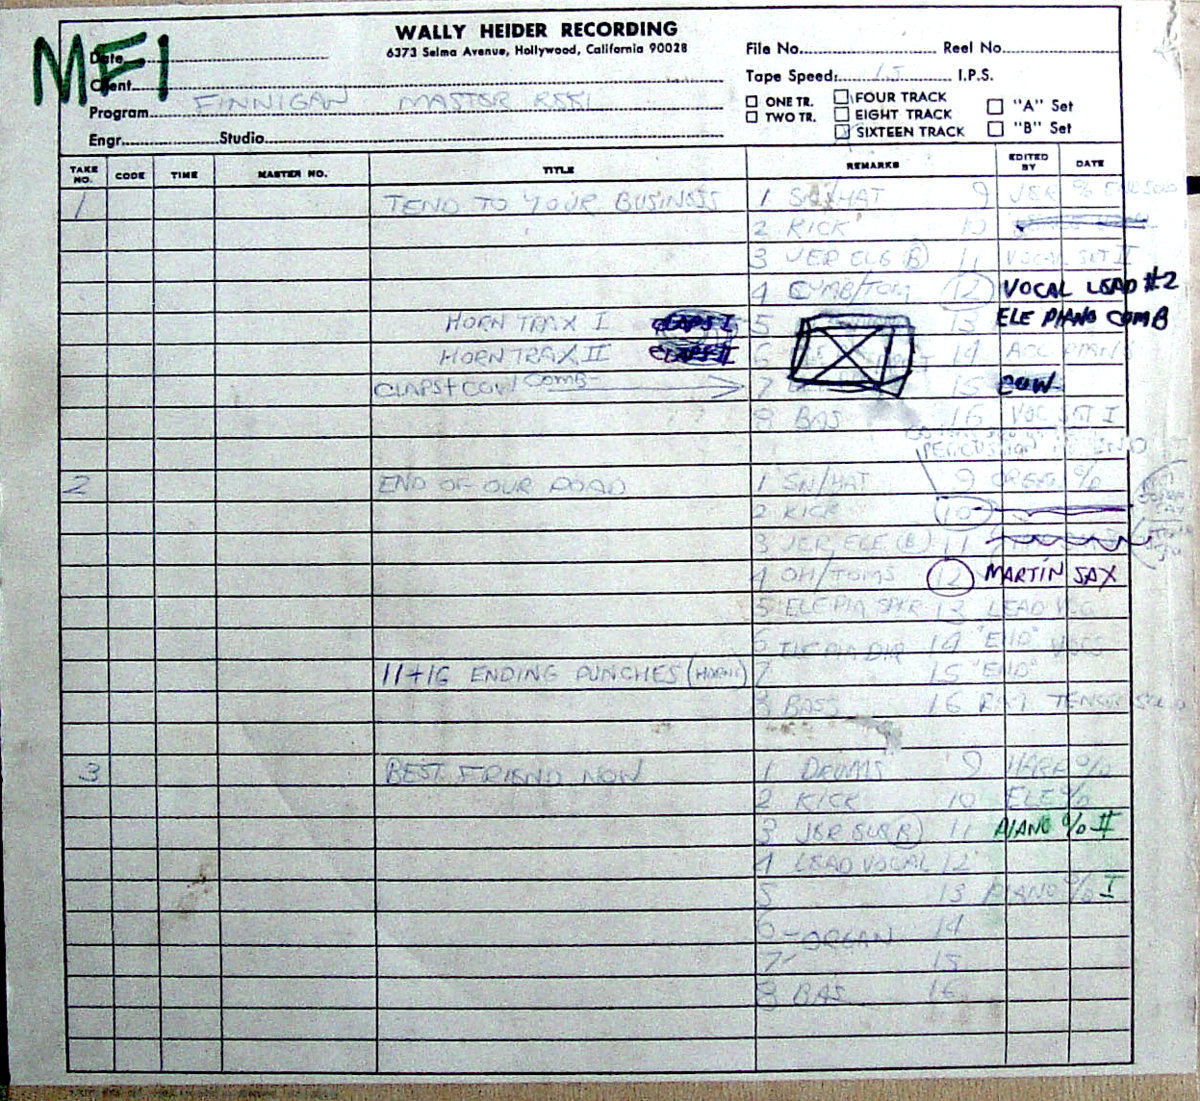 MF1
WALLY HEIDER RECORDING
6373 Selma Avenue, Hollywood, California 90028
File No. Reel No.
Date
Client
Tape Speed: 15 I.P.S.
Program FINNIGAN MASTER REEL
ONE TR. FOUR TRACK "A" Set
TWO TR. EIGHT TRACK "B" Set
Engr. Studio SIXTEEN TRACK
TAKE NO. CODE TIME MASTER NO. TITLE REMARKS EDITED BY DATE
1 TEND TO YOUR BUSINESS 1 SN/HAT 9 JER % END SOLO
2 KICK 10
3 JER ELE (B) 11 VOCAL SET II
4 CYMB/TOM 12 VOCAL LEAD #2
HORN TRAX I CLAPS I 5 13 ELE PIANO COMB
HORN TRAX II CLAPS II 6 14 ACC PIANO
CLAPS + COW COMB 7 15 COW
8 BAS 16 VOC SET I
PERCUSSION END
2 END OF OUR ROAD 1 SN/HAT 9 ORGAN %
2 KICK 10
3 JER ELE (B) 11
4 OH/TOMS 12 MARTIN SAX
5 ELE PIA SPKR 13 LEAD VOC
6 ELE PIA DIR 14 "END" VOCS
11+16 ENDING PUNCHES (HORNS) 7 15 "END"
8 BASS 16 TENOR SOLO
3 BEST FRIEND NOW 1 DRUMS 9 HARP %
2 KICK 10 ELE %
3 JER ELE (B) 11 PIANO % II
4 LEAD VOCAL 12
5 13 PIANO % I
6 - ORGAN 14
7 - 15
8 BAS 16